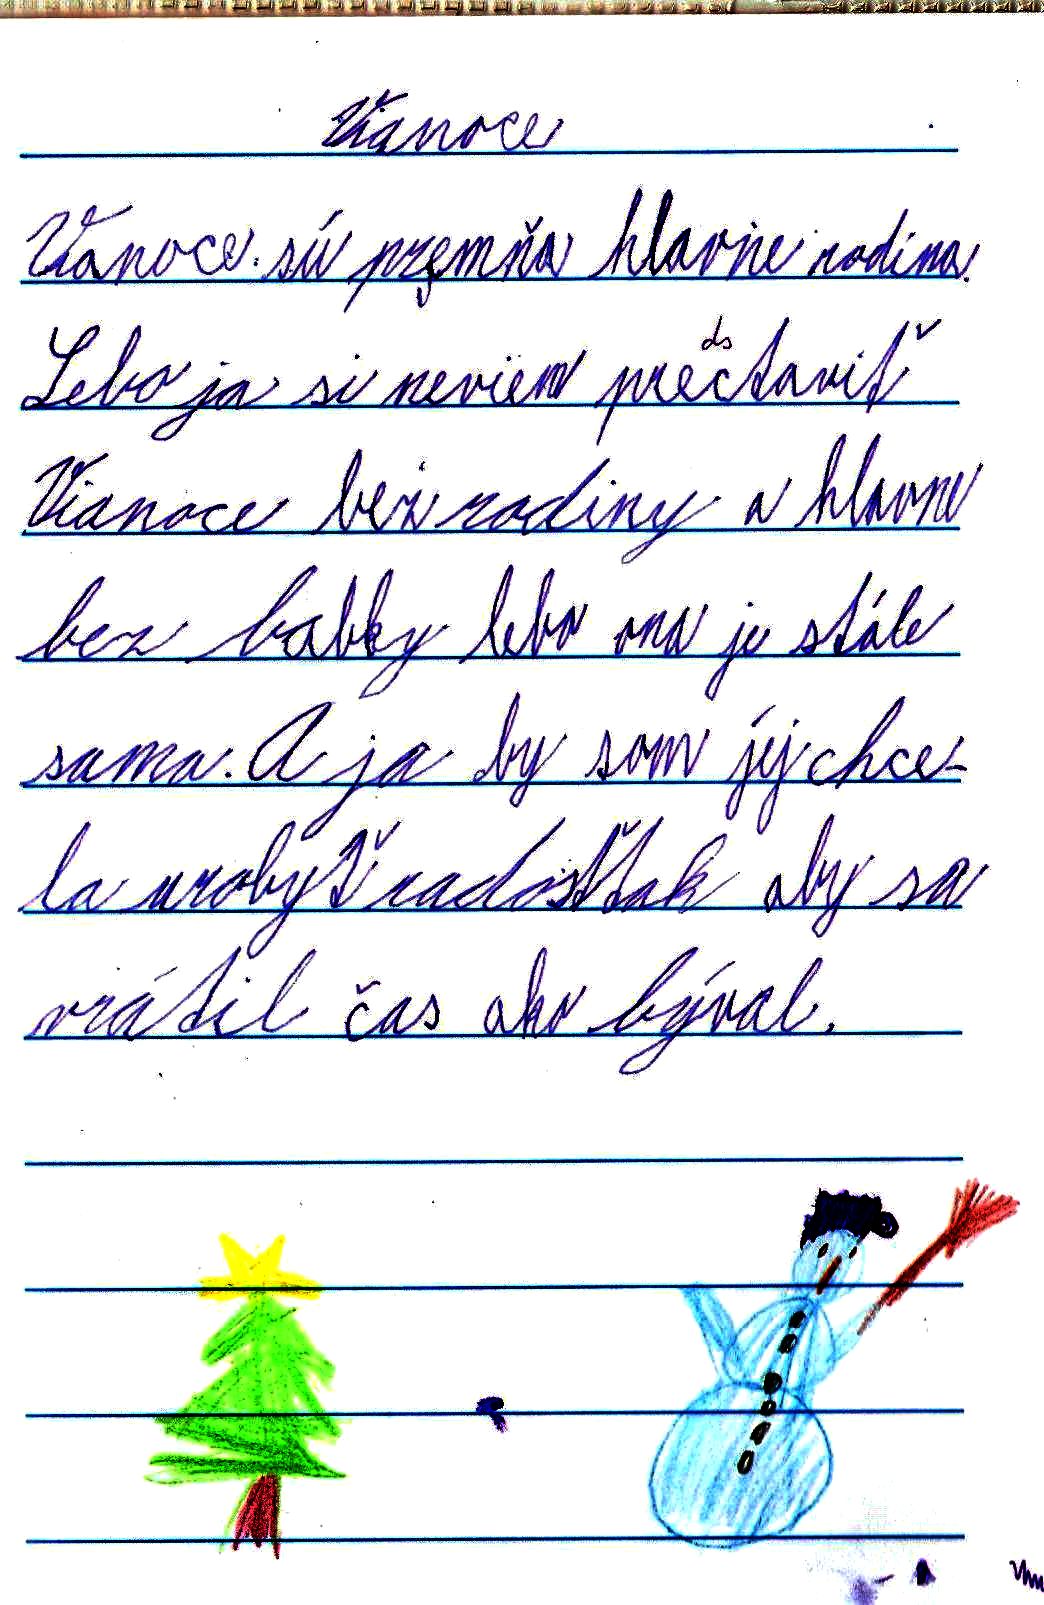 Vianoce
Vianoce sú premňa hlavne rodina.
Lebo ja si neviem predstaviť
Vianoce bez rodiny a hlavne
bez babky lebo ona je stále
sama. A ja by som jéj chce-
la urobyť radosť tak aby sa
vrátil čas ako býval.